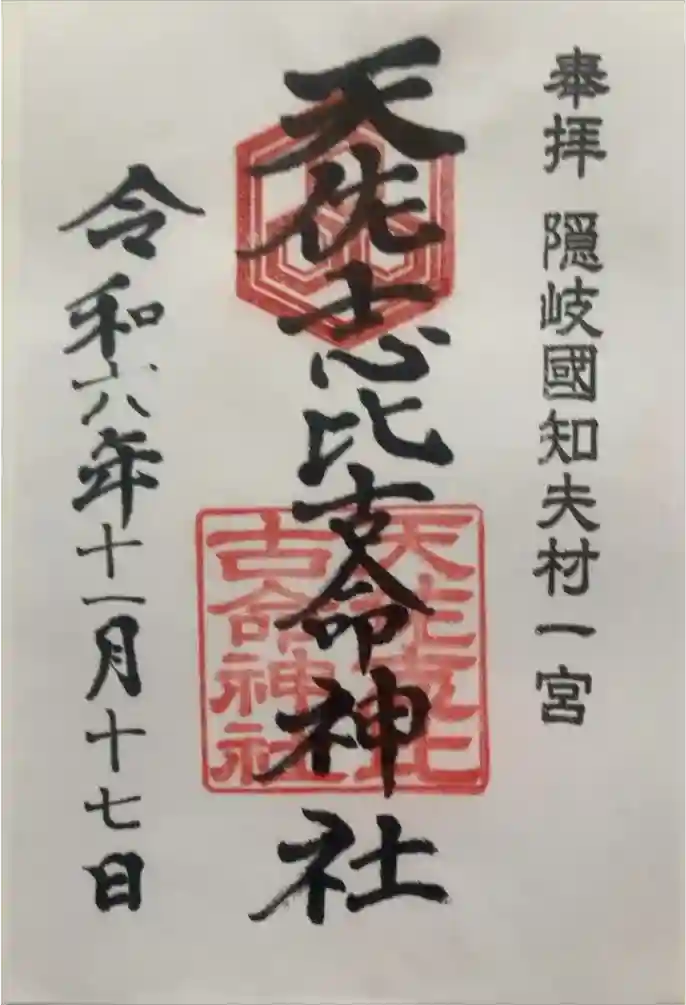 奉拝 隠岐國知夫村一宮
天佐志比古命神社
天佐志比
古命神社
令和六年十一月十七日